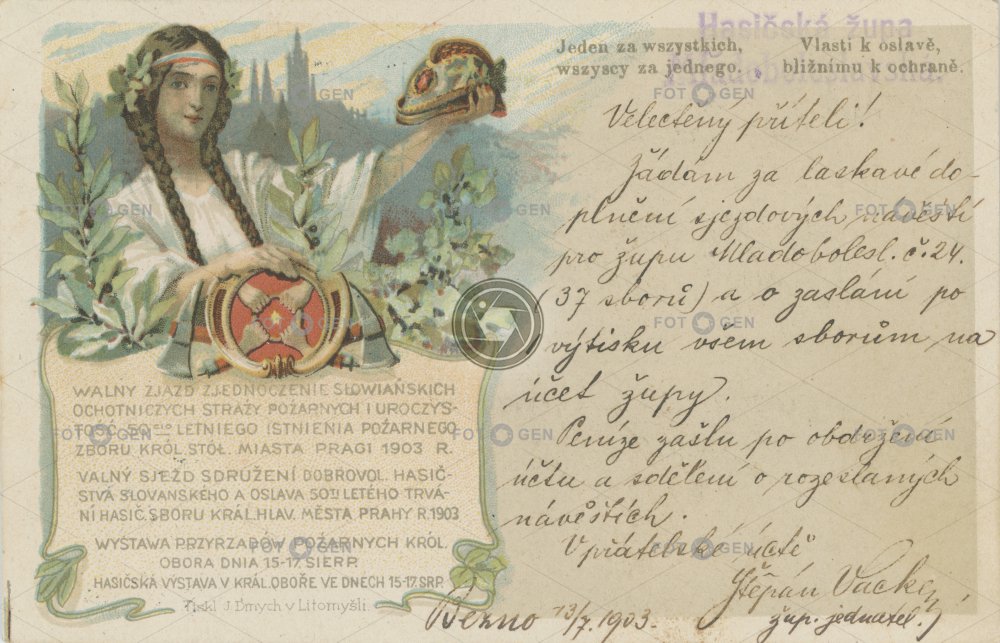 Hasičská župa
Jeden za wszystkich,
wszyscy za jednego.
Vlasti k oslavě,
bližnímu k ochraně.
FOTOGEN
Velectěný příteli!
Žádám za laskavé do-
plnění sjezdových návěstí
pro župu Mladobolesl. č. 24.
(37 sborů) a o zaslání po
výtisku všem sborům na
účet župy.
Peníze zašlu po obdržení
účtu a sdělení o rozeslaných
návěštích.
V přátelské úctě
Štěpán
žup. jednatel.
Bezno 13/7. 1903.
WALNY ZJAZD ZJEDNOCZENIE SŁOWIAŃSKICH
OCHOTNICZYCH STRAŻY POŻARNYCH I UROCZYS-
TOŚĆ 50-CIO LETNIEGO ISTNIENIA POŻARNEGO
ZBORU KRÓL. STOŁ. MIASTA PRAGI 1903 R.
VALNÝ SJEZD SDRUŽENÍ DOBROVOL. HASIČ-
STVA SLOVANSKÉHO A OSLAVA 50TI LETÉHO TRVÁ-
NÍ HASIČ. SBORU KRÁL. HLAV. MĚSTA PRAHY R. 1903
WYSTAWA PRZYRZADÓW POŻARNYCH KRÓL.
OBORA DNIA 15-17. SIERP.
HASIČSKÁ VÝSTAVA V KRÁL. OBOŘE VE DNECH 15-17. SRP.
Tiskl J. Dmych v Litomyšli